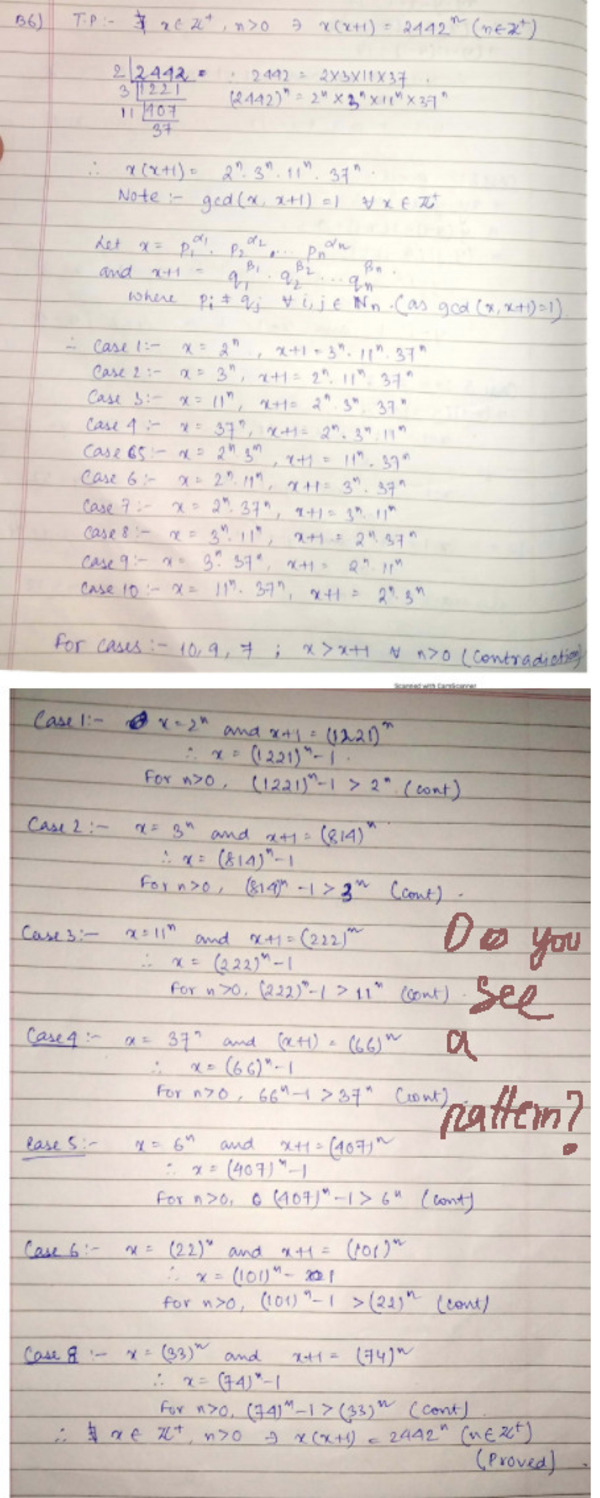 B6) T.P:- ∄ x ∈ ℤ⁺, n>0 ∋ x(x+1) = 2442ⁿ (n∈ℤ⁺)
2 | 2442 = 2442 = 2×3×11×37.
3 | 1221 (2442)ⁿ = 2ⁿ × 3ⁿ × 11ⁿ × 37ⁿ
11 | 407
37
∴ x(x+1) = 2ⁿ. 3ⁿ. 11ⁿ. 37ⁿ.
Note :- gcd(x, x+1) = 1 ∀ x ∈ ℤ⁺
Let x = p₁^α₁. p₂^α₂.... pₙ^αₙ
and x+1 = q₁^β₁. q₂^β₂... qₙ^βₙ.
where pᵢ ≠ qⱼ ∀ i,j ∈ ℕₙ. (as gcd (x, x+1)=1)
∴ Case 1:- x = 2ⁿ, x+1 = 3ⁿ. 11ⁿ. 37ⁿ
Case 2:- x = 3ⁿ, x+1 = 2ⁿ. 11ⁿ. 37ⁿ
Case 3:- x = 11ⁿ, x+1 = 2ⁿ. 3ⁿ. 37ⁿ
Case 4:- x = 37ⁿ, x+1 = 2ⁿ. 3ⁿ. 11ⁿ
Case 5:- x = 2ⁿ. 3ⁿ, x+1 = 11ⁿ. 37ⁿ
Case 6:- x = 2ⁿ. 11ⁿ, x+1 = 3ⁿ. 37ⁿ
Case 7:- x = 2ⁿ. 37ⁿ, x+1 = 3ⁿ. 11ⁿ
Case 8:- x = 3ⁿ. 11ⁿ, x+1 = 2ⁿ. 37ⁿ
Case 9:- x = 3ⁿ. 37ⁿ, x+1 = 2ⁿ. 11ⁿ
Case 10:- x = 11ⁿ. 37ⁿ, x+1 = 2ⁿ. 3ⁿ
For cases:- 10, 9, 7 ; x > x+1 ∀ n>0 (Contradiction)
Scanned with CamScanner
Case 1:- x = 2ⁿ and x+1 = (1221)ⁿ
∴ x = (1221)ⁿ-1.
For n>0, (1221)ⁿ-1 > 2ⁿ (cont)
Case 2:- x = 3ⁿ and x+1 = (814)ⁿ
∴ x = (814)ⁿ-1
For n>0, (814)ⁿ -1 > 3ⁿ (cont).
Case 3:- x=11ⁿ and x+1 = (222)ⁿ
∴ x = (222)ⁿ-1
For n>0, (222)ⁿ-1 > 11ⁿ (cont).
Case 4:- x = 37ⁿ and (x+1) = (66)ⁿ
∴ x = (66)ⁿ-1
For n>0, 66ⁿ-1 > 37ⁿ (cont)
Do you
see
a
pattern?
Case 5:- x = 6ⁿ and x+1 = (407)ⁿ
∴ x = (407)ⁿ-1
For n>0, (407)ⁿ-1 > 6ⁿ (cont)
Case 6:- x = (22)ⁿ and x+1 = (101)ⁿ
∴ x = (101)ⁿ - 1
For n>0, (101)ⁿ-1 > (22)ⁿ (cont)
Case 8:- x = (33)ⁿ and x+1 = (74)ⁿ
∴ x = (74)ⁿ-1
For n>0, (74)ⁿ-1 > (33)ⁿ (cont)
∴ ∄ x ∈ ℤ⁺, n>0 ∋ x(x+1) = 2442ⁿ (n∈ℤ⁺)
(Proved).